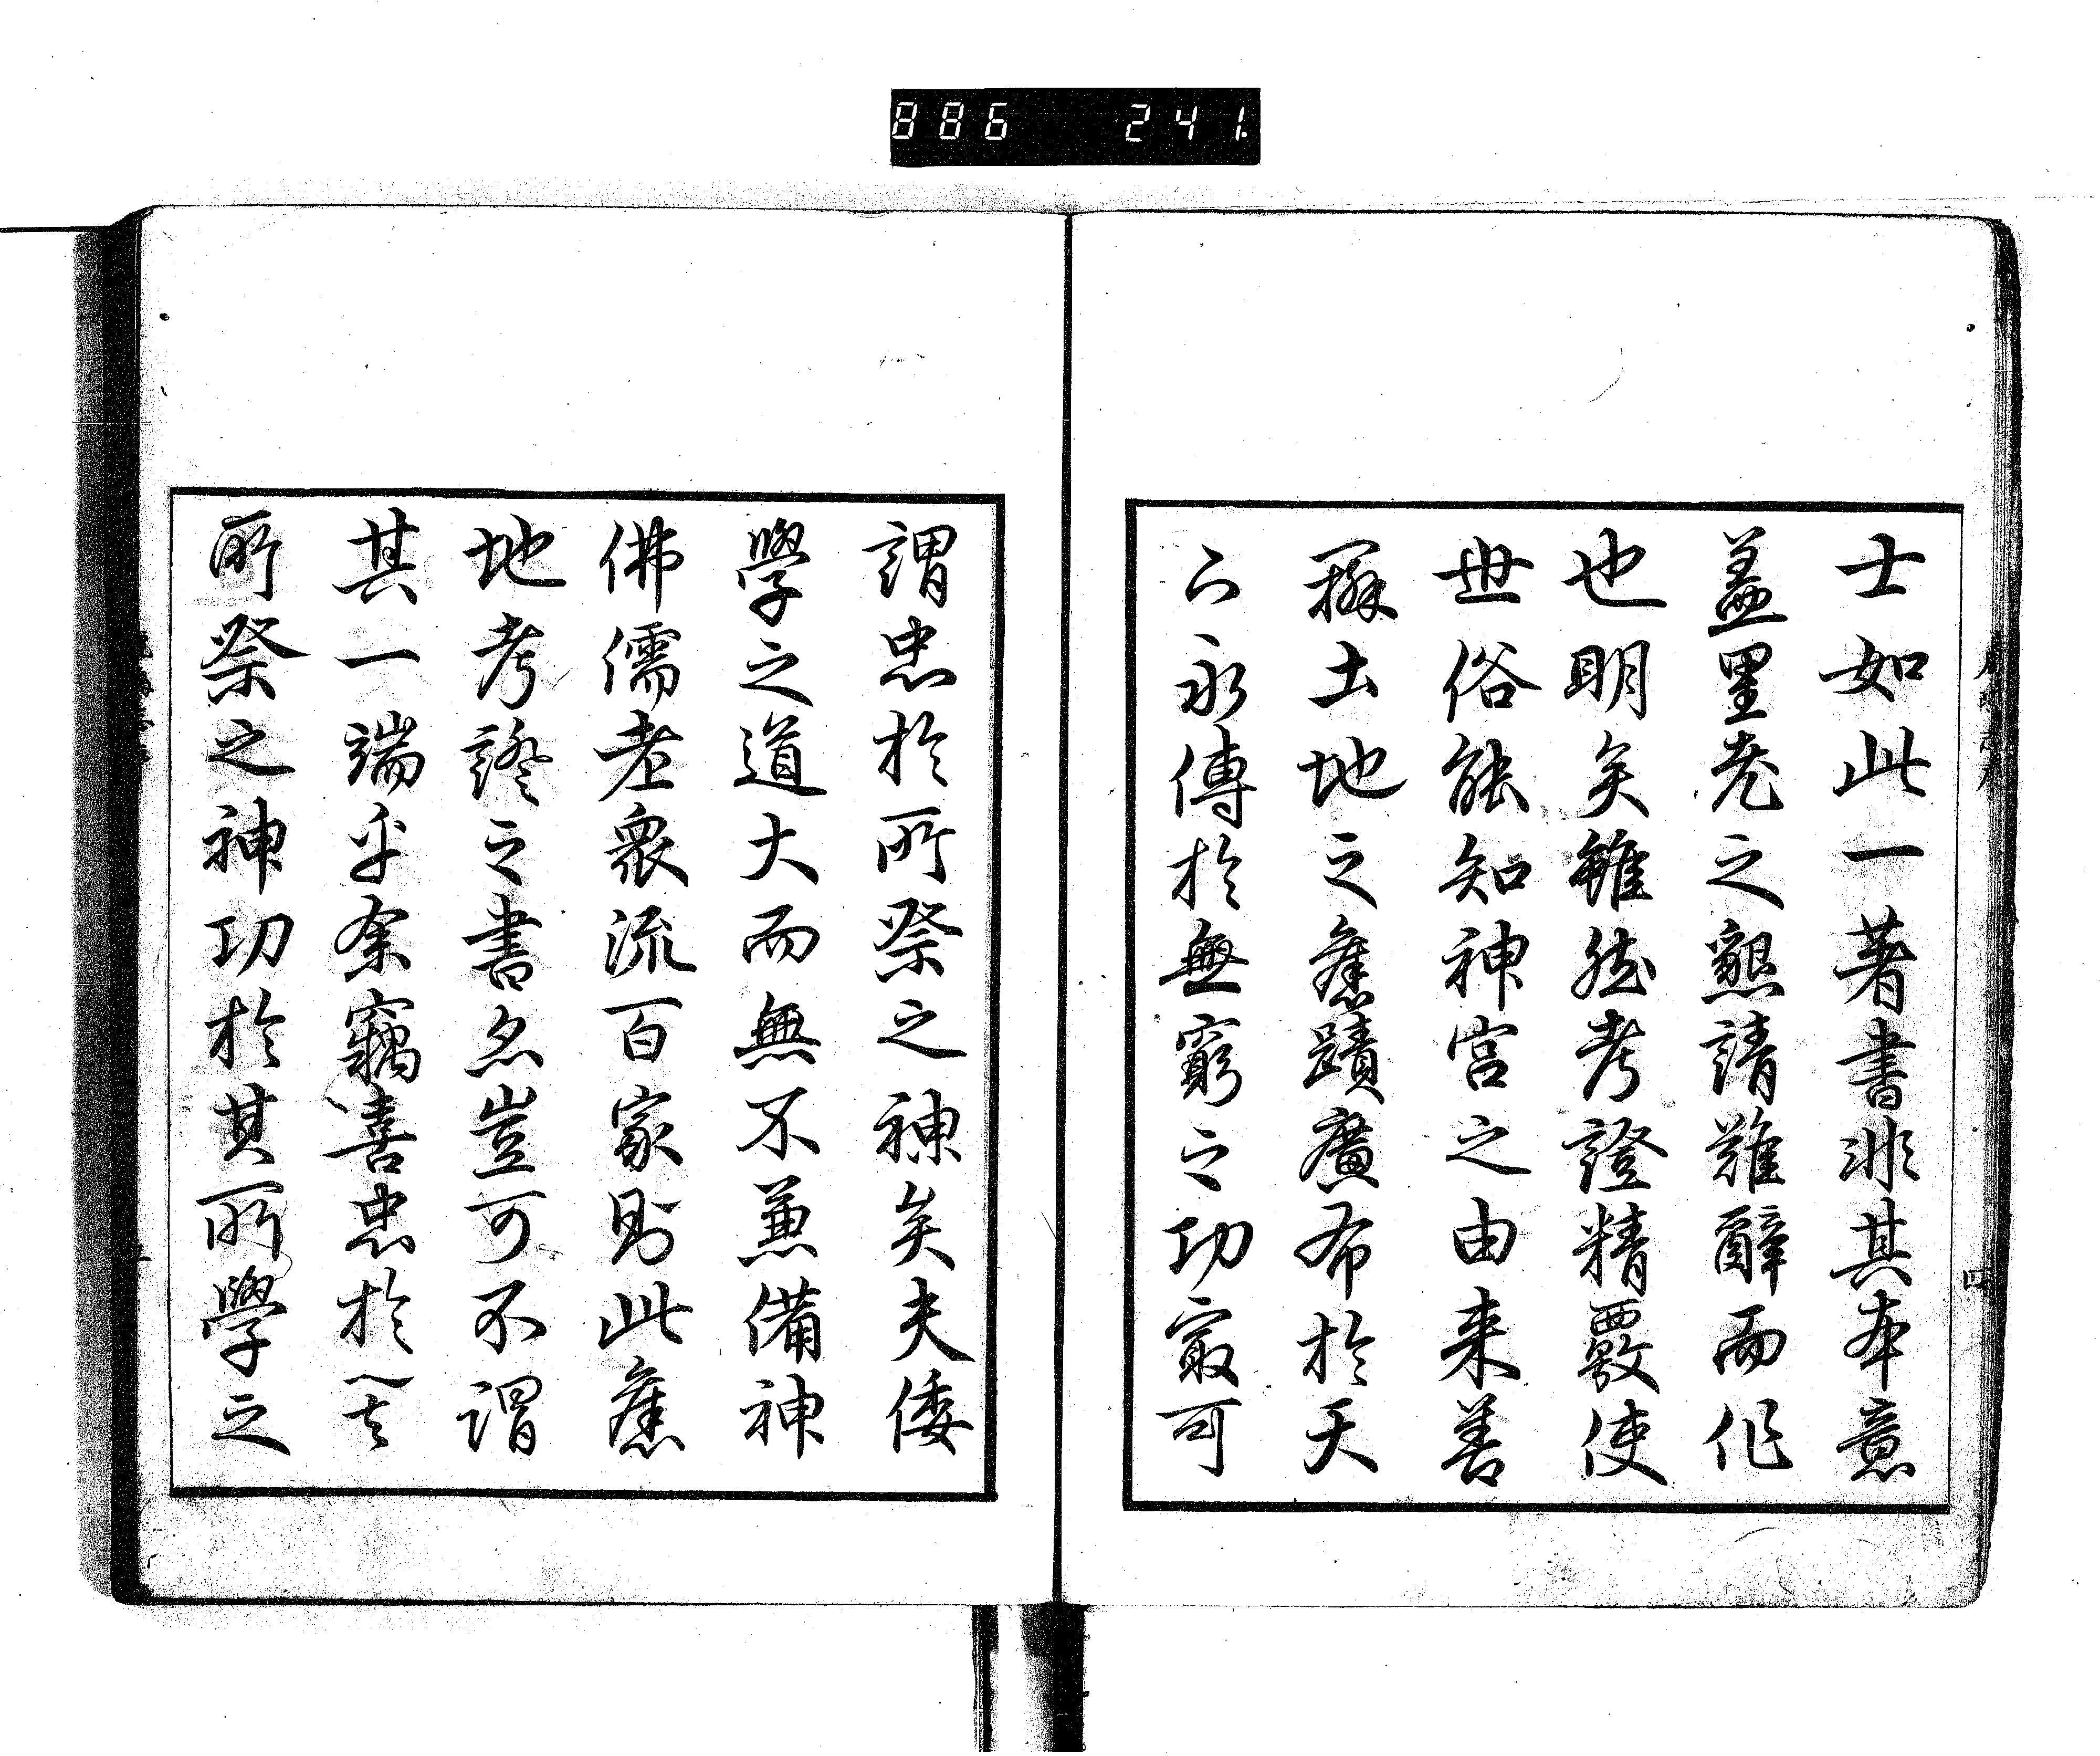 886 241
士如此一著書非其本意
蓋里老之懇請難辭而作
也明矣雖然考證精覈使
世俗能知神宮之由来善
辨土地之舊蹟廣布於天
下永傳於無窮之功寂可
謂忠於所祭之神矣夫倭
學之道大而無不兼備神
佛儒老衆流百家則此舊
地考證之書名豈可不謂
其一端乎余竊喜忠於其
所祭之神功於其所學之
四